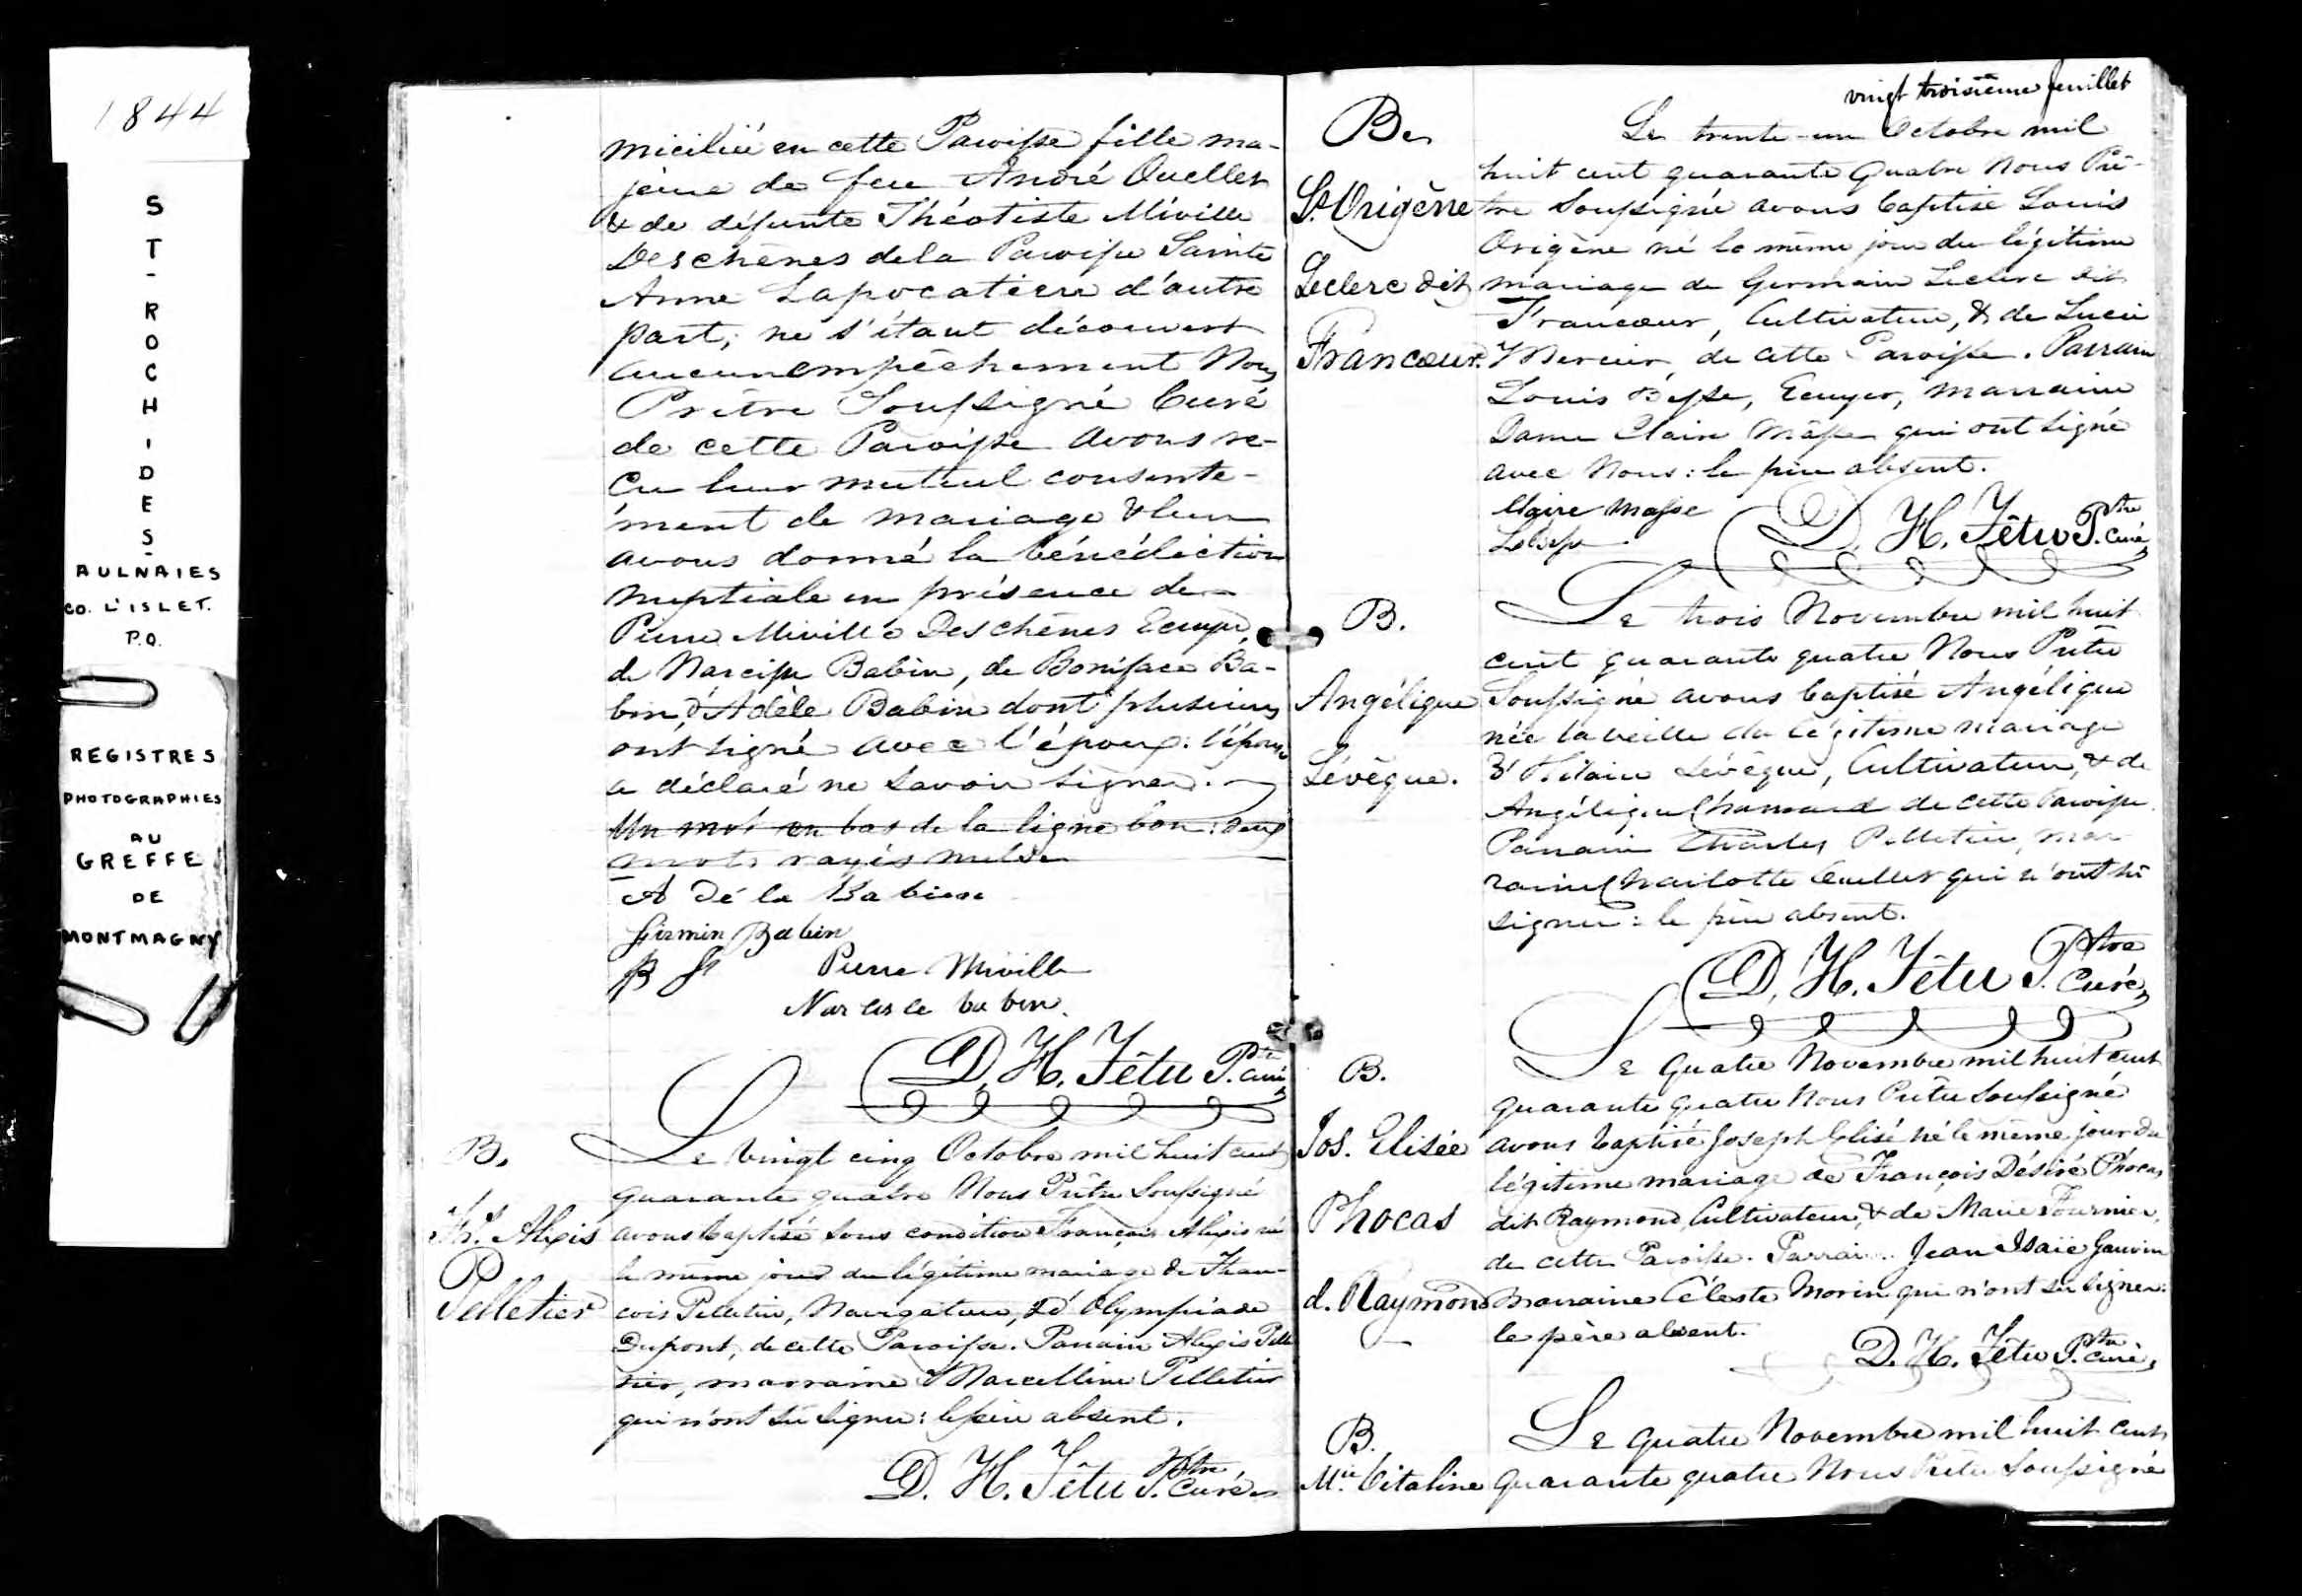 1844
ST-ROCH-DES-
AULNAIES
CO. L'ISLET.
P.Q.
REGISTRES
PHOTOGRAPHIES
AU
GREFFE
DE
MONTMAGNY
miciliée en cette Paroisse fille ma-
jeure de feu André Ouellet
& de défunte Théotiste Miville
Deschènes de la Paroisse Sainte
Anne Lapocatiere d'autre
part; ne s'étant découvert
aucun empêchement Nous
Prêtre Soussigné Curé
de cette Paroisse avons re-
çu leur mutuel consente-
ment de mariage & leur
avons donné la bénédiction
nuptiale en présence de
Pierre Miville Deschênes Ecuyer,
de Narcisse Babin, de Boniface Ba-
bin, d'Adèle Babin dont plusieurs
ont signé avec l'époux: l'épouse
a déclaré ne savoir signer.
Un mot en bas de la ligne bon: deux
mots rayés nuls
Adéla Babin
Firmin Babin
Pierre Miville
Narcisse babin.
D. H. Têtu Ptre curé
B.
Frs. Alexis
Pelletier
Le vingt cinq Octobre mil huit cent
quarante quatre Nous Prêtre Soussigné
avons baptisé sous condition François Alexis né
le même jour du légitime mariage de Fran-
cois Pelletier, Navigateur, & d'Olympiade
Dupont, de cette Paroisse. Parrain Alexis Pelle
tier, marraine Marcelline Pelletier
qui n'ont su signer: le père absent.
D. H. Têtu Ptre Curé
vingt troisième feuillet
B.
Ls. Origène
Leclerc dit
Francœur.
Le trente-un Octobre mil
huit cent quarante quatre Nous Prê-
tre Soussigné avons baptisé Louis
Origène né le même jour du légitime
mariage de Germain Leclerc dit
Francœur, Cultivateur, & de Lucie
Mercier, de cette Paroisse. Parrain
Louis Bosse, Ecuyer, marraine
Dame Claire Mâsse qui ont signé
avec Nous: le père absent.
Claire Masse
D. H. Têtu Ptre Curé
B.
Angélique
Lévêque.
Le trois Novembre mil huit
cent quarante quatre Nous Prêtre
Soussigné avons baptisé Angélique
née la veille du légitime mariage
d'Hilaire Lévêque, Cultivateur, & de
Angélique Chamard de cette Paroisse
Parrain Charles Pelletier, mar-
raine Charlotte Ouellet qui n'ont su
signer: le père absent.
D. H. Têtu Ptre Curé
B.
Jos. Elisée
Phocas
d. Raymond
Le quatre Novembre mil huit cent
quarante quatre Nous Prêtre Soussigné
avons baptisé Joseph Elisé né le même jour du
légitime mariage de François Désiré Phocas
dit Raymond, Cultivateur, & de Marie Fournier,
de cette Paroisse. Parrain Jean Isaïe Gauvin
marraine Céleste Morin qui n'ont su signer:
le père absent.
D. H. Têtu Ptre Curé
B.
Mie. Vitaline
Le quatre Novembre mil huit cent
quarante quatre Nous Prêtre Soussigné